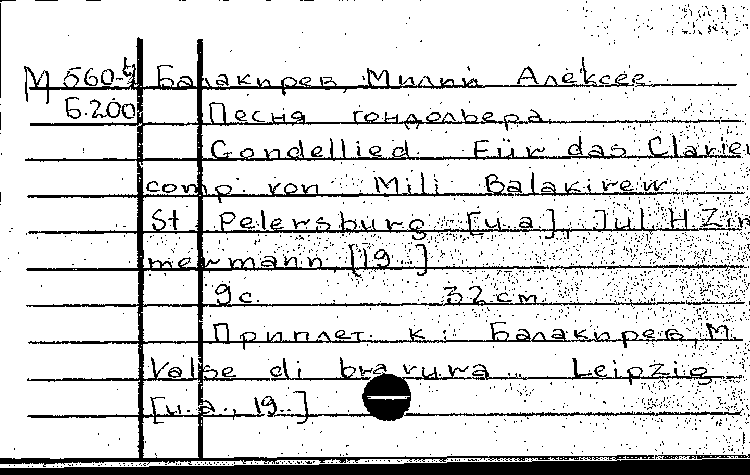 М 560-
Балакирев, Милий Алексее
Б.200
Песня гондольера.
Gondellied. Für das Clavier
comp. von Mili Balakirew
St. Petersburg [u.a.], Jul. H. Zim
mermann, [19..]
9 с. 32 cm
Приплет. к: Балакирев, М.
Valse di bravura. Leipzig
[u.a., 19..]